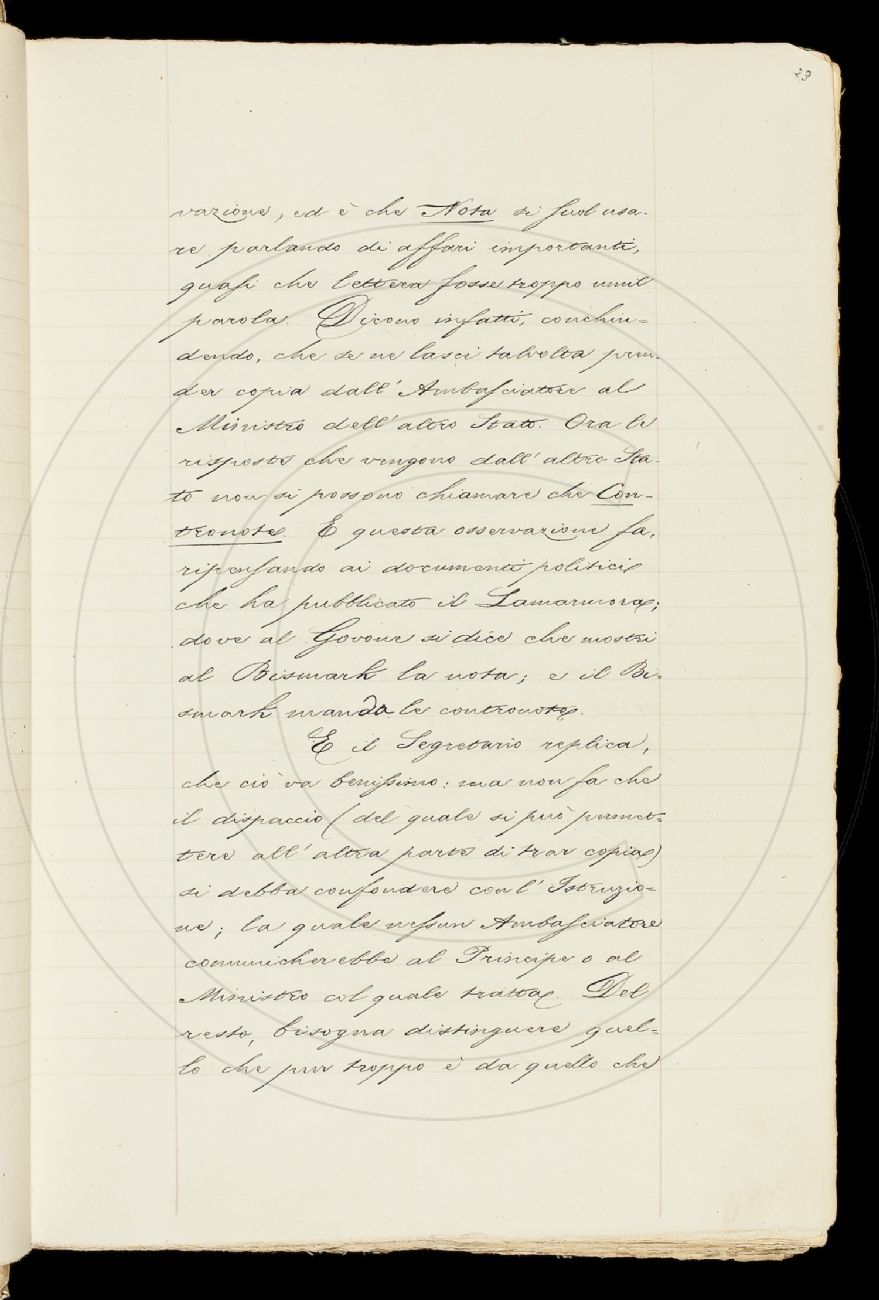 29
vazione, ed è che Nota si suol usa-
re parlando di affari importanti,
quasi che lettera fosse troppo umil
parola. Dicono infatti, conchiu=
dendo, che se ne lasci talvolta pren-
der copia dall' Ambasciatore al
Ministro dell' altro Stato. Ora le
risposte che vengono dall' altro Sta-
to non si possono chiamare che Con-
tronote. E questa osservazione fa,
ripensando ai documenti politici
che ha pubblicato il Lamarmora;
dove al Govone si dice che mostri
al Bismark la nota; e il Bi-
smark manda le contronote.
E il Segretario replica,
che ciò va benissimo: ma non fa che
il dispaccio (del quale si può permet=
tere all' altra parte di trar copia)
si debba confondere coll' Istruzio=
ne; la quale nessun Ambasciatore
comunicherebbe al Principe o al
Ministro col quale tratta. Del
resto, bisogna distinguere quel=
lo che pur troppo è da quello che